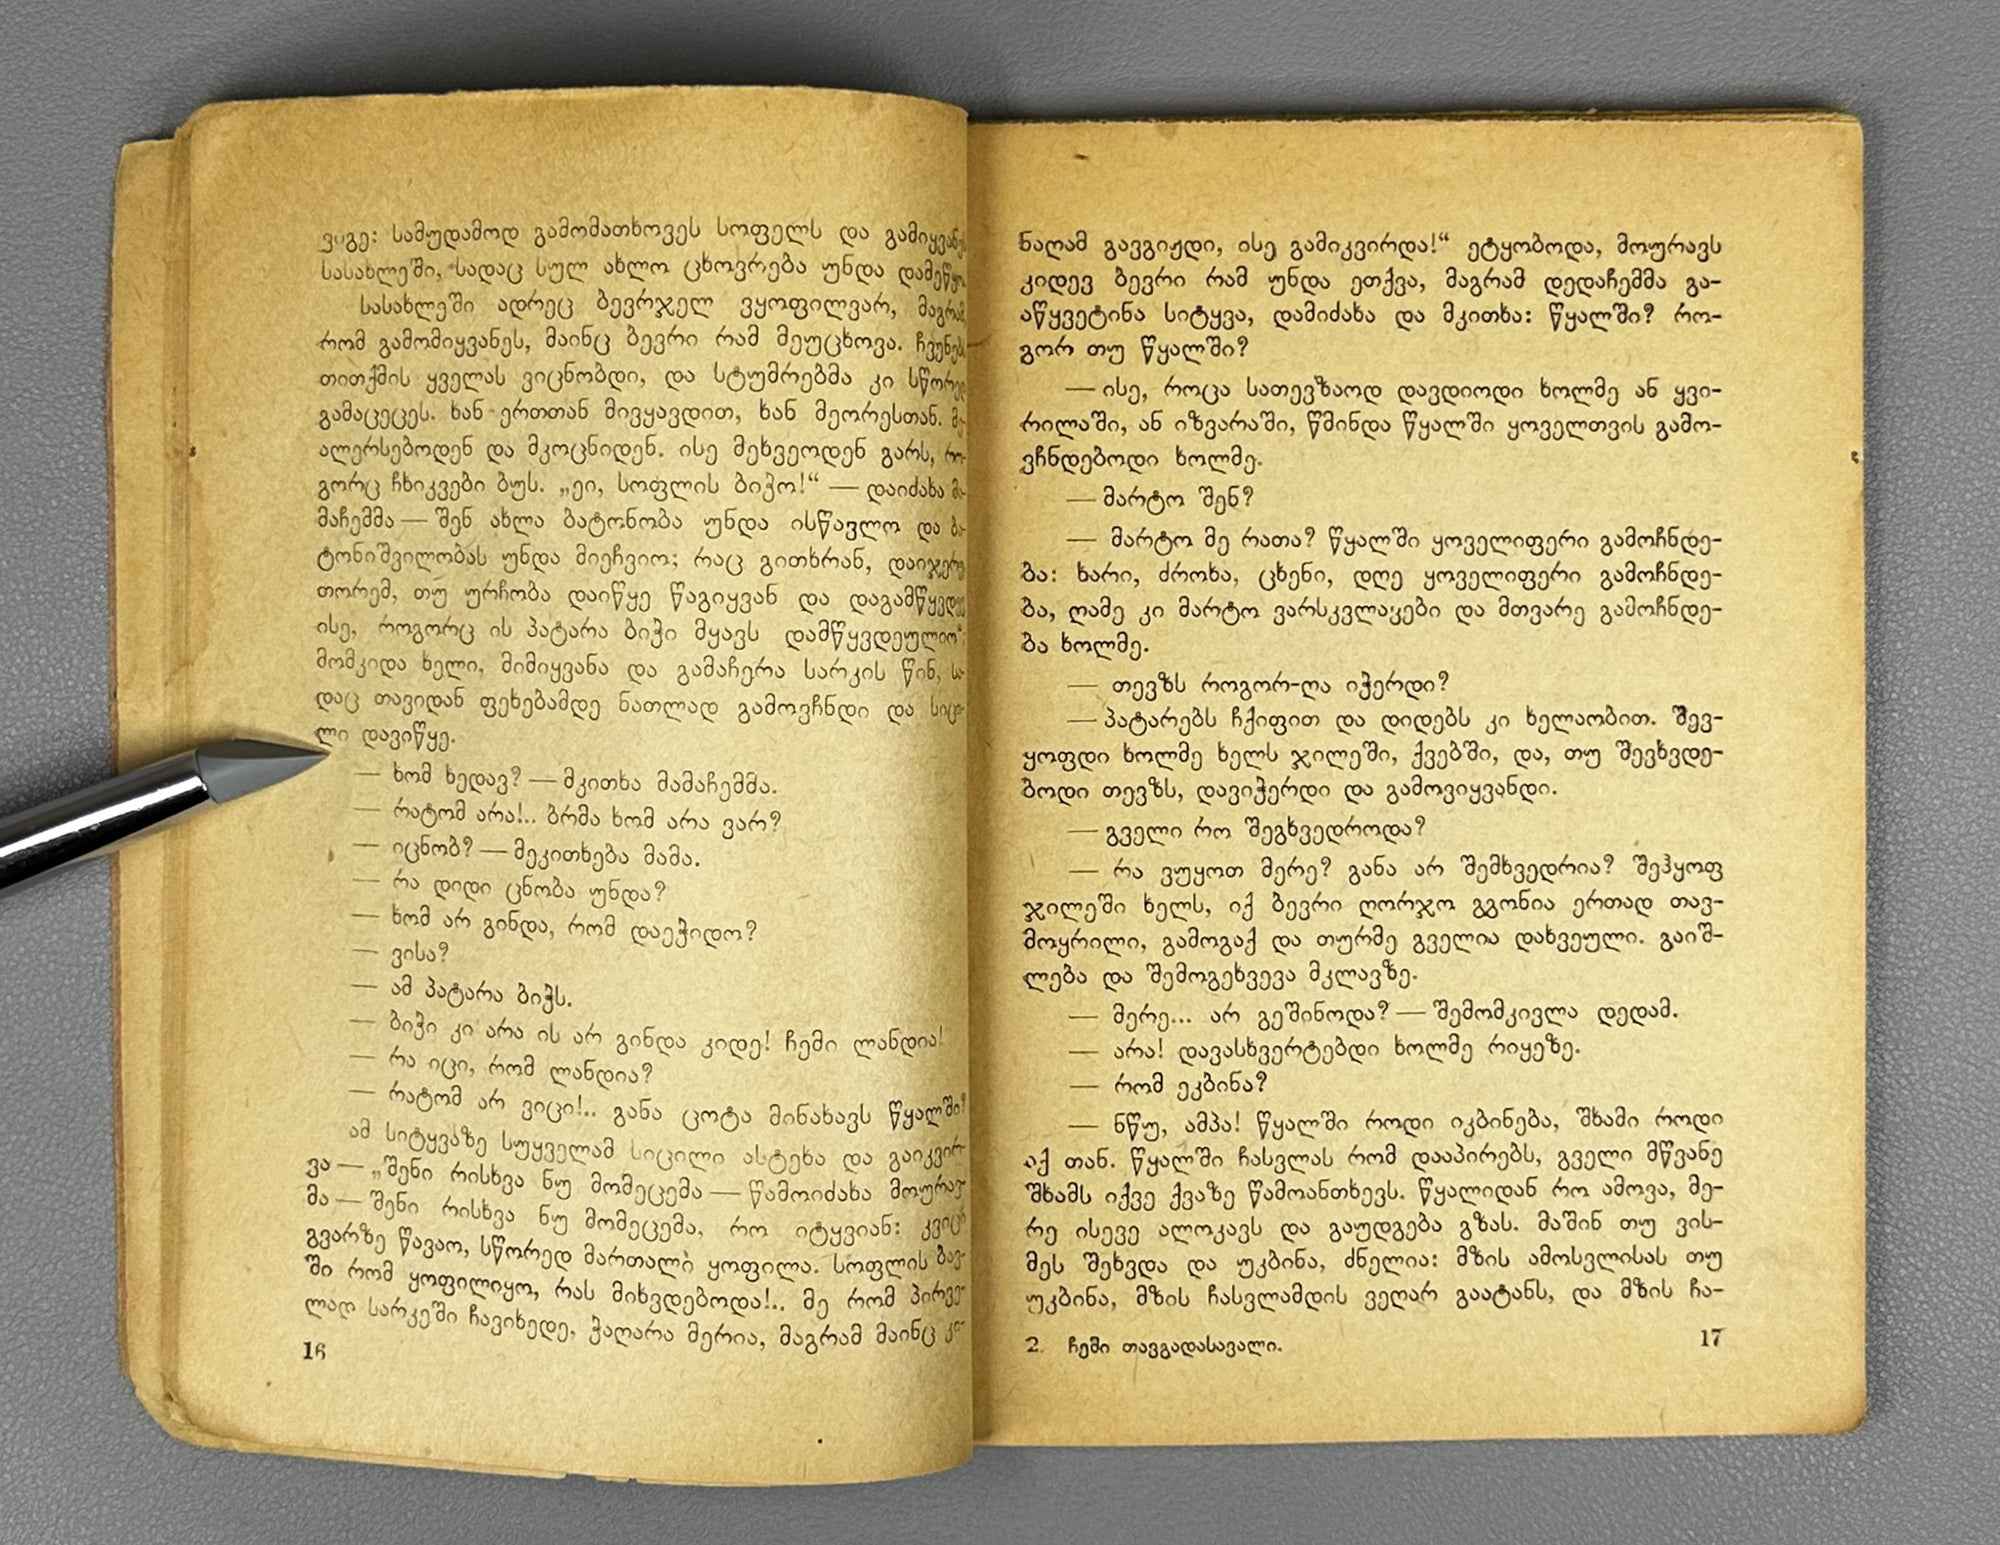 ვიგე: სამუდამოდ გამომათხოვეს სოფელს და გამიყვანეს
სასახლეში, სადაც სულ ახლო ცხოვრება უნდა დამეწყო.
სასახლეში ადრეც ბევრჯელ ვყოფილვარ, მაგრამ,
რომ გამომიყვანეს, მაინც ბევრი რამ მეუცხოვა. ჩვენებს
თითქმის ყველას ვიცნობდი, და სტუმრებმა კი სწორედ
გამაცეცეს. ხან ერთთან მივყავდით, ხან მეორესთან. მე-
ალერსებოდენ და მკოცნიდენ. ისე მეხვეოდენ გარს, რო-
გორც ჩხიკვები ბუს. „ეი, სოფლის ბიჭო!“ — დაიძახა მა-
მაჩემმა — შენ ახლა ბატონობა უნდა ისწავლო და ბა-
ტონიშვილობას უნდა მიეჩვიო; რაც გითხრან, დაიჯერე
თორემ, თუ ურჩობა დაიწყე წაგიყვან და დაგამწყვდევ
ისე, როგორც ის პატარა ბიჭი მყავს დამწყვდეულიო“;
მომკიდა ხელი, მიმიყვანა და გამაჩერა სარკის წინ, სა-
დაც თავიდან ფეხებამდე ნათლად გამოვჩნდი და სიცი-
ლი დავიწყე.
— ხომ ხედავ? — მკითხა მამაჩემმა.
— რატომ არა!.. ბრმა ხომ არა ვარ?
— იცნობ? — მეკითხება მამა.
— რა დიდი ცნობა უნდა?
— ხომ არ გინდა, რომ დაეჭიდო?
— ვისა?
— ამ პატარა ბიჭს.
— ბიჭი კი არა ის არ გინდა კიდე! ჩემი ლანდია!
— რა იცი, რომ ლანდია?
— რატომ არ ვიცი!.. განა ცოტა მინახავს წყალში?
ამ სიტყვაზე სუყველამ სიცილი ასტეხა და გაიკვირ-
ვა — „შენი რისხვა ნუ მომეცემა — წამოიძახა მოურავ-
მა — შენი რისხვა ნუ მომეცემა, რო იტყვიან: კვიცი
გვარზე წავაო, სწორედ მართალი ყოფილა. სოფლის ბავ-
ში რომ ყოფილიყო, რას მიხვდებოდა!.. მე რომ პირვე-
ლად სარკეში ჩავიხედე, ჭაღარა მერია, მაგრამ მაინც კი-
16
ნაღამ გავგიჟდი, ისე გამიკვირდა!“ ეტყობოდა, მოურავს
კიდევ ბევრი რამ უნდა ეთქვა, მაგრამ დედაჩემმა გა-
აწყვეტინა სიტყვა, დამიძახა და მკითხა: წყალში? რო-
გორ თუ წყალში?
— ისე, როცა სათევზაოდ დავდიოდი ხოლმე ან ყვი-
რილაში, ან იზვარაში, წმინდა წყალში ყოველთვის გამო-
ვჩნდებოდი ხოლმე.
— მარტო შენ?
— მარტო მე რათა? წყალში ყოველიფერი გამოჩნდე-
ბა: ხარი, ძროხა, ცხენი, დღე ყოველიფერი გამოჩნდე-
ბა, ღამე კი მარტო ვარსკვლავები და მთვარე გამოჩნდე-
ბა ხოლმე.
— თევზს როგორ-ღა იჭერდი?
— პატარებს ჩქიფით და დიდებს კი ხელაობით. შევ-
ყოფდი ხოლმე ხელს ჯილეში, ქვებში, და, თუ შევხვდე-
ბოდი თევზს, დავიჭერდი და გამოვიყვანდი.
— გველი რო შეგხვედროდა?
— რა ვუყოთ მერე? განა არ შემხვედრია? შეჰყოფ
ჯილეში ხელს, იქ ბევრი ღორჯო გგონია ერთად თავ-
მოყრილი, გამოგაქ და თურმე გველია დახვეული. გაიშ-
ლება და შემოგეხვევა მკლავზე.
— მერე... არ გეშინოდა? — შემომკივლა დედამ.
— არა! დავასხვერტებდი ხოლმე რიყეზე.
— რომ ეკბინა?
— ნწუ, ამპა! წყალში როდი იკბინება, შხამი როდი
აქ თან. წყალში ჩასვლას რომ დააპირებს, გველი მწვანე
შხამს იქვე ქვაზე წამოანთხევს. წყალიდან რო ამოვა, მე-
რე ისევე ალოკავს და გაუდგება გზას. მაშინ თუ ვის-
მეს შეხვდა და უკბინა, ძნელია: მზის ამოსვლისას თუ
უკბინა, მზის ჩასვლამდის ვეღარ გაატანს, და მზის ჩა-
2. ჩემი თავგადასავალი.
17